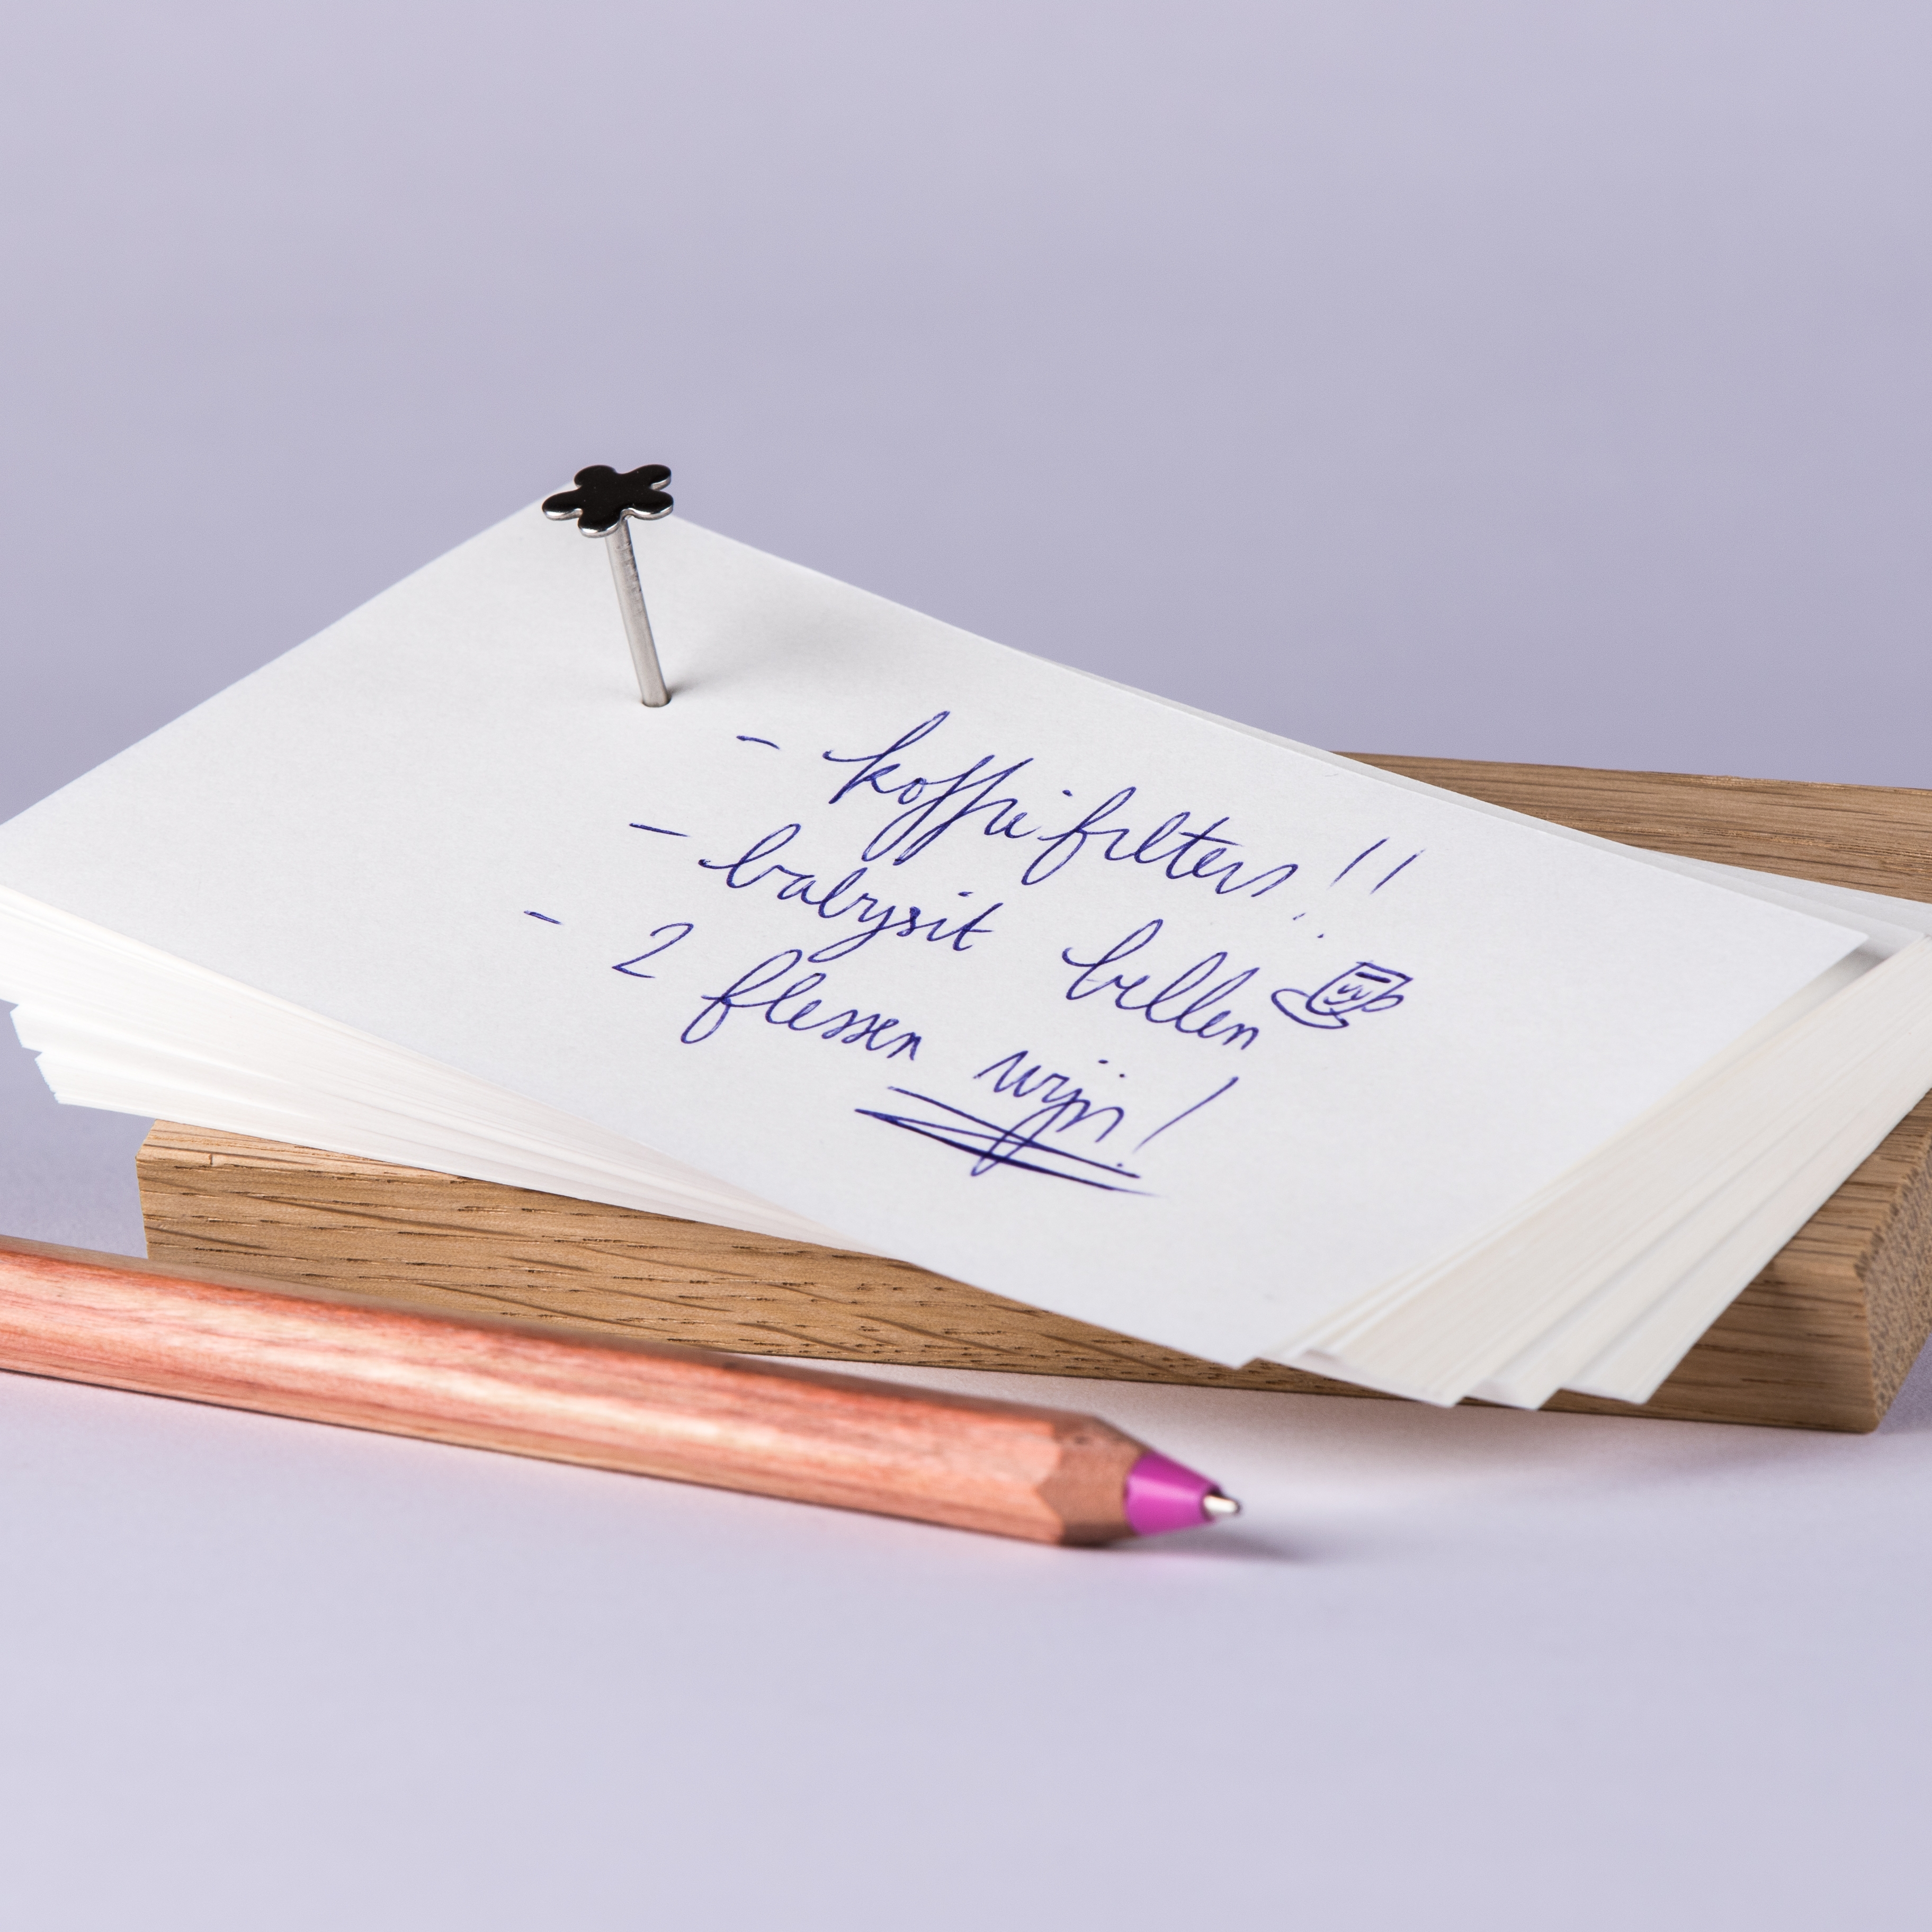 - koffiefilters!!
- babysit bellen
- 2 flessen wijn!